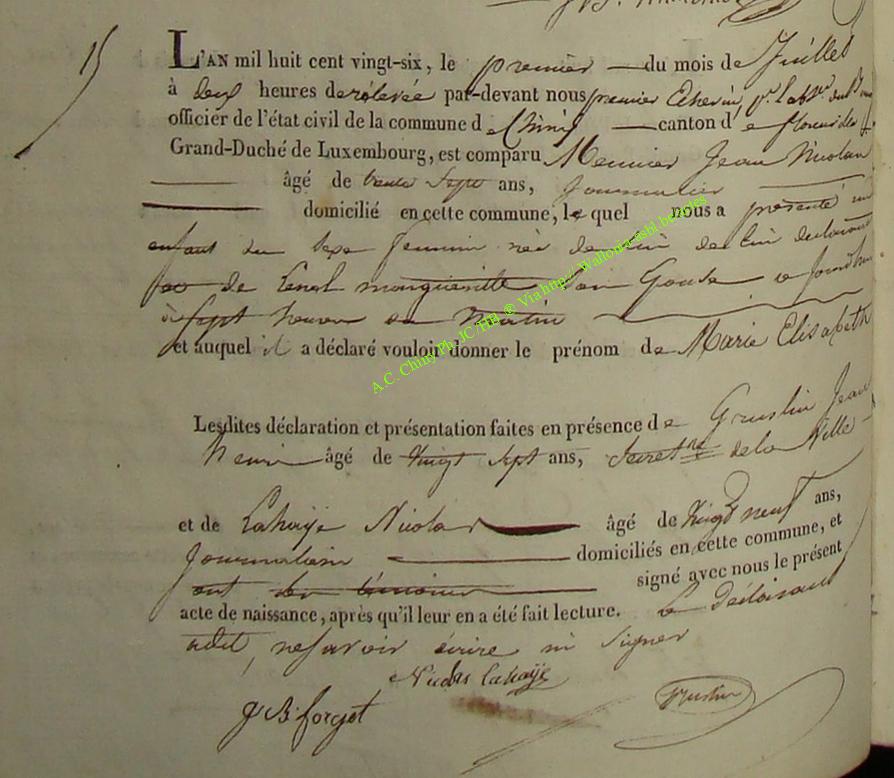 15
L'AN mil huit cent vingt-six, le premier du mois de Juillet
à deux heures de relevée par-devant nous premier Echevin,
officier de l'état civil de la commune de Chiny canton de florenville
Grand-Duché de Luxembourg, est comparu Meunier Jean Nicolas
âgé de trente Sept ans, Journalier
domicilié en cette commune, lequel nous a presenté un
enfant du Sexe feminin née de lui declarant
de Goude Jourdhui
à Sept heures du Matin
et auquel il a déclaré vouloir donner le prénom de Marie Elisabeth
Lesdites déclaration et présentation faites en présence de Gruslin Jean
henri âgé de Vingt Sept ans, Secret.re de la Ville
et de Lahaÿe Nicolas âgé de Vingt neuf ans,
Journalier domiciliés en cette commune, et
ont les témoins signé avec nous le présent
acte de naissance, après qu'il leur en a été fait lecture. Le Déclarant
adit, ne savoir écrire ni Signer
Nicolas Lahaÿe
J B forget
Gruslin
A.C. Chiny Ph JC/HB ® Via http:// Wallonia asbl.be/actes